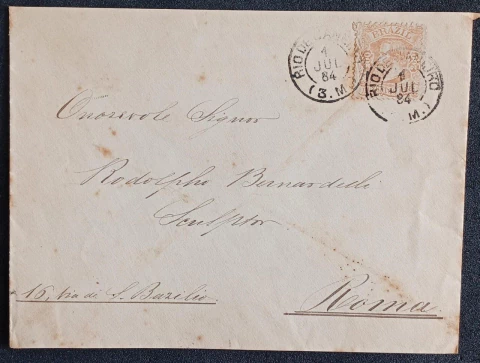 BRAZIL
RIO DE JANEIRO
1
JUL
84
(3.M
RIO DE JANEIRO
1
JUL
84
M.)
Onorevole Signor
Rodolpho Bernardelli
Sculptor
16, via di S. Bazilio
Roma